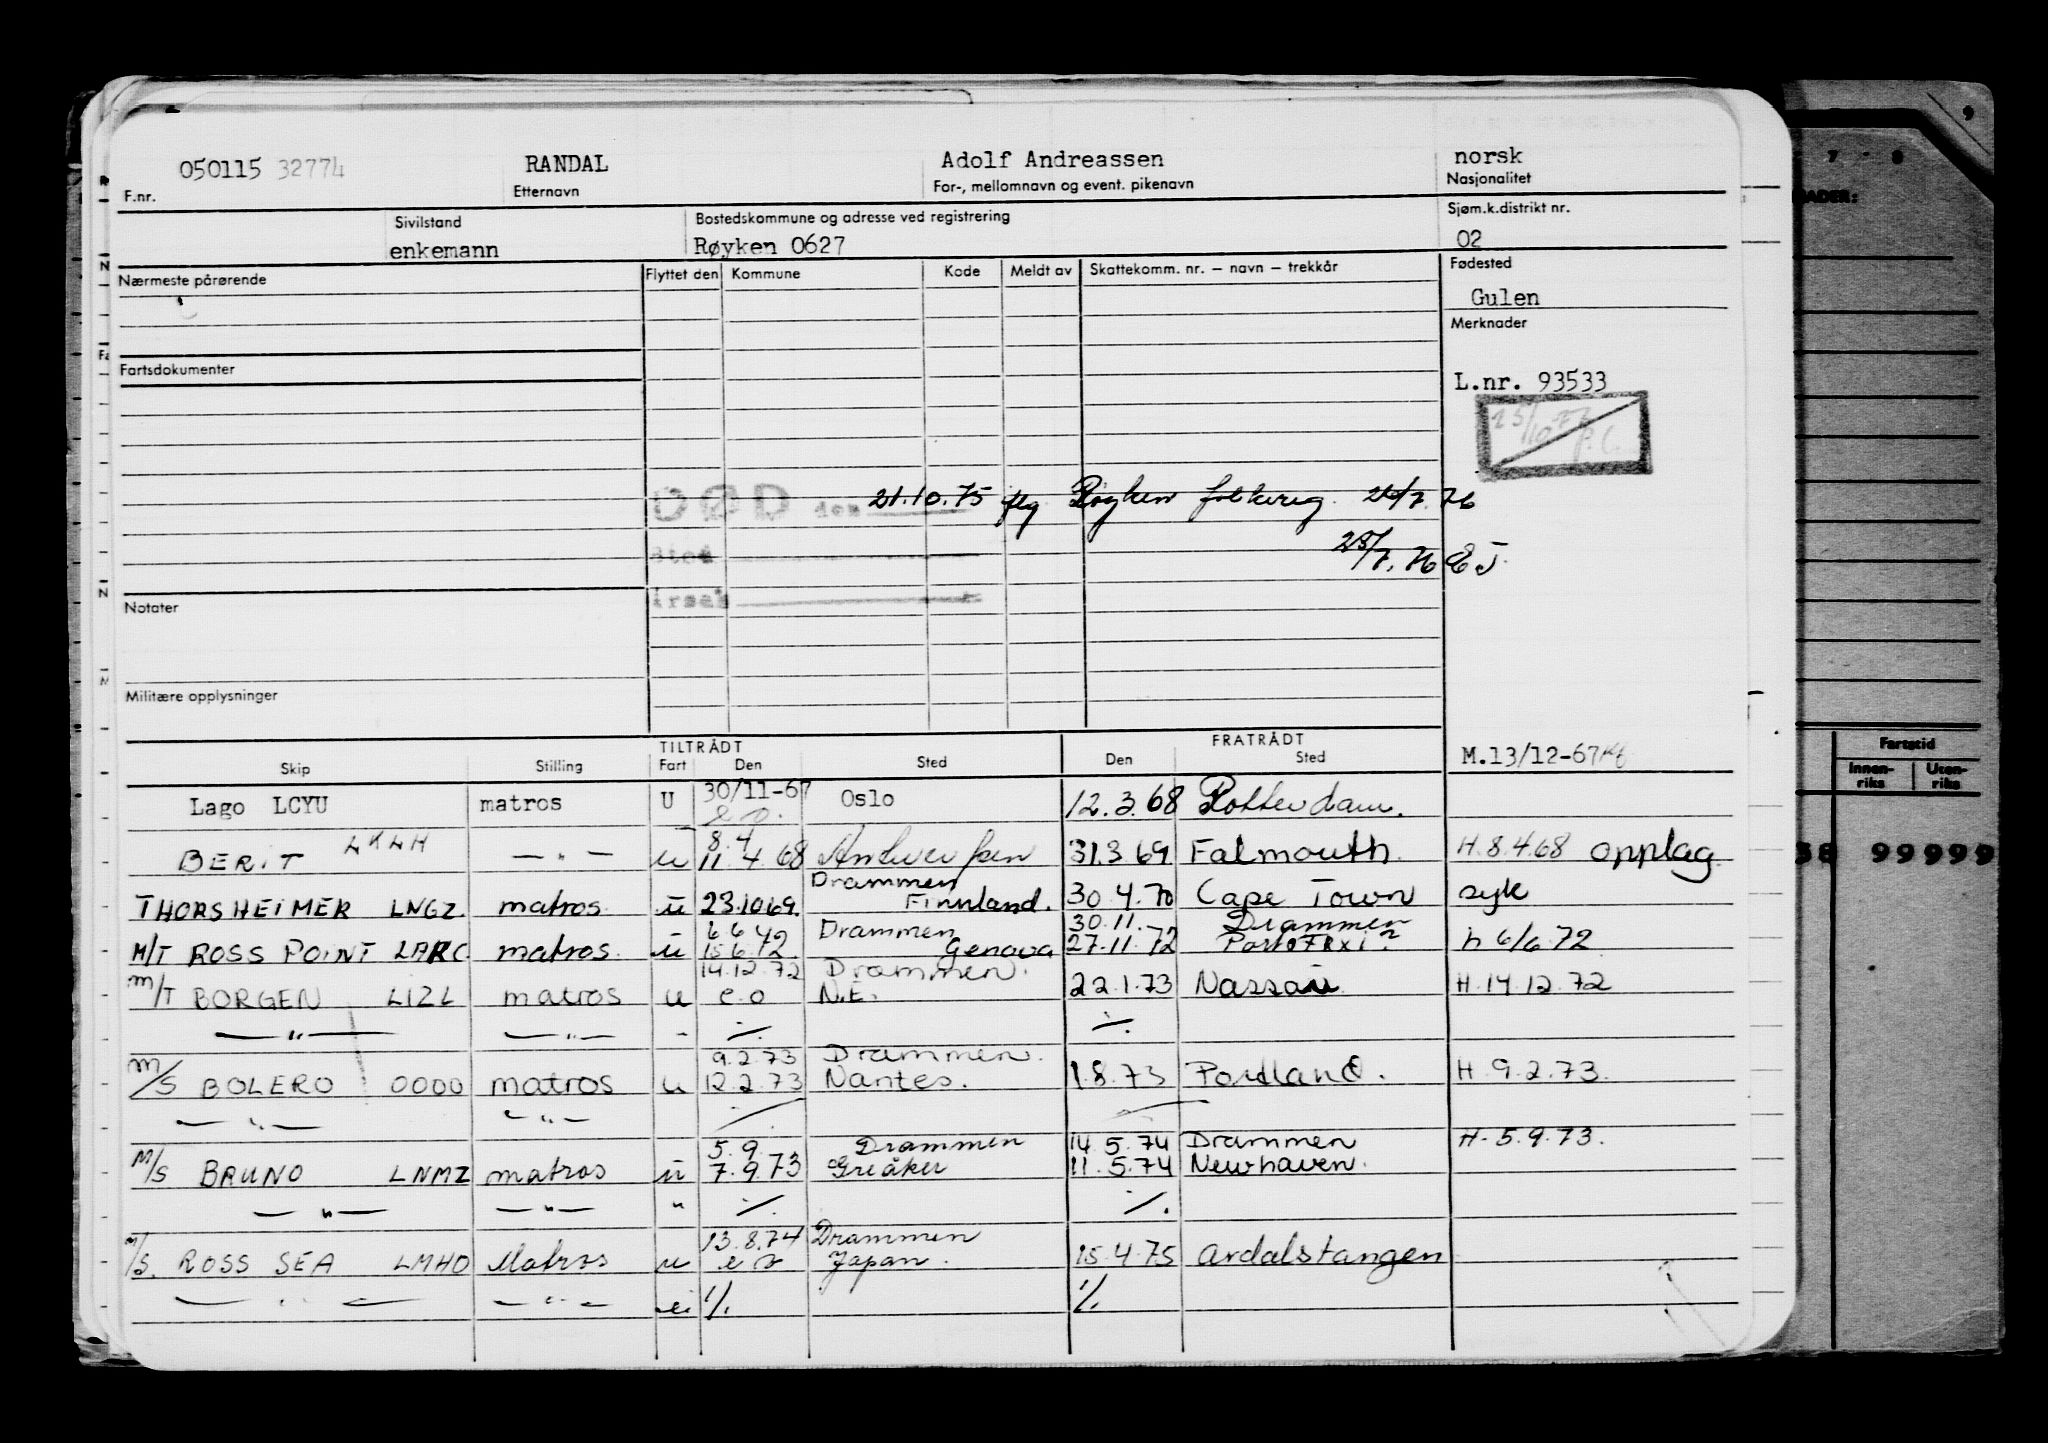 050115 32774 RANDAL Adolf Andreassen norsk
F.nr. Etternavn For-, mellomnavn og event. pikenavn Nasjonalitet
Sivilstand Bostedskommune og adresse ved registrering Sjøm.k.distrikt nr.
enkemann Røyken 0627 02
Nærmeste pårørende Flyttet den Kommune Kode Meldt av Skattekomm. nr. — navn — trekkår Fødested
Gulen
Merknader
Fartsdokumenter
L.nr. 93533
DØD den 21.10.75 flg Røyken folkereg. 26/7.76
Sted 28/7.76 EJ
Årsak
Notater
Militære opplysninger
TILTRÅDT FRATRÅDT
Skip Stilling Fart Den Sted Den Sted M.13/12-67
Lago LCYU matros U 30/11-67 Oslo 12.3.68 Rotterdam.
e o.
8.4
BERIT LKLH — " — u 11.4.68 Antwerpen 31.3.69 Falmouth. H.8.4.68 opplag
Drammen
THORSHEIMER LNGZ. matros. u 23.10 69. Finnland. 30 4.70 Cape Town syk
6 6 72 Drammen 30.11. Drammen
M/T ROSS POINT LARC. matros. u 15 6.72. Genova 27.11.72 h 6/6.72
14.12.72 Drammen.
M/T BORGEN LIZL matros u e.o N.E. 22.1.73 Nassau H.14.12.72
— " — — " — - ./. ./.
9.2.73 Drammen.
M/S BOLERO 0000 matros u 12.2.73 Nantes. 1.8.73 Portland. H.9.2.73.
— " — — " —
5.9. Drammen 14.5.74 Drammen H.5.9.73.
M/S BRUNO LNMZ matros u 7.9.73 Greåker 11.5.74 Newhaven.
— " — — " — " ./. ./.
13.8.74 Drammen
M/S. ROSS SEA LMHO Matros u e o Japan. 15.4.75 Ardalstangen
— " — — " — u ./. ./.
9
7 - 8
Fartstid
Innenriks Utenriks
38 99999